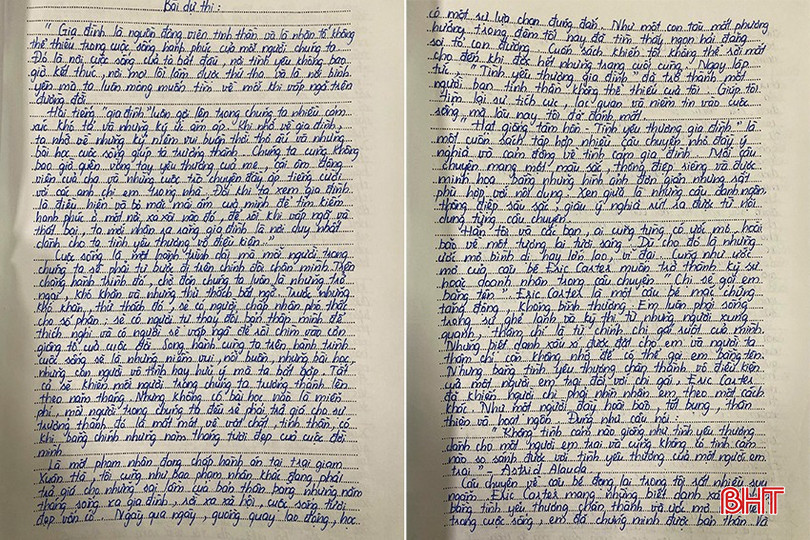 Bài dự thi:
" Gia đình là nguồn động viên tinh thần và là nhân tố không
thể thiếu trong cuộc sống hạnh phúc của mỗi người chúng ta.
Đó là nơi cuộc sống của ta bắt đầu, nơi tình yêu không bao
giờ kết thúc, nơi mọi lỗi lầm được thứ tha và là nơi bình
yên mà ta luôn mong muốn tìm về mỗi khi vấp ngã trên
đường đời.
Hai tiếng "gia đình" luôn gợi lên trong chúng ta nhiều cảm
xúc khó tả và những ký ức ấm áp. Khi nhớ về gia đình,
ta nhớ về những kỷ niệm vui buồn thời thơ ấu và những
bài học cuộc sống giúp ta trưởng thành. Chúng ta cũng không
bao giờ quên vòng tay yêu thương của mẹ, cái ôm động
viên của cha và những cuộc trò chuyện đầy ắp tiếng cười
với các anh chị em trong nhà. Đôi khi ta xem gia đình
là điều hiển và bỏ mái ấm của mình để tìm kiếm
hạnh phúc ở một nơi xa xôi nào đó, để rồi khi vấp ngã và
thất bại, ta mới nhận ra rằng gia đình là nơi duy nhất
dành cho ta tình yêu thương vô điều kiện."
Cuộc sống là một hành trình dài mà mỗi người trong
chúng ta sẽ phải tự bước đi trên chính đôi chân mình. Trên
chặng hành trình đó, chờ đón chúng ta luôn là những trở
ngại, khó khăn và những thử thách bất ngờ. Trước những
khó khăn, thử thách đó, sẽ có người chấp nhận phó thác
cho số phận; sẽ có người tự thay đổi bản thân mình để
thích nghi và có người sẽ vấp ngã để rồi chìm vào cơn
giông tố của cuộc đời. Song hành cùng ta trên hành trình
cuộc sống sẽ là những niềm vui, nỗi buồn, những bài học,
những con người vô tình hay hữu ý mà ta bắt gặp. Tất
cả sẽ khiến mỗi người trong chúng ta trưởng thành lên
theo năm tháng. Nhưng không có bài học nào là miễn
phí, mà người trong chúng ta đều sẽ phải trả giá cho sự
trưởng thành đó là mất mát về vật chất, tinh thần, có
khi bằng chính những năm tháng tươi đẹp của cuộc đời
mình.
Là một phạm nhân đang chấp hành án tại trại giam
Xuân Hà, tôi cũng như bao phạm nhân khác đang phải
trả giá cho những sai lầm của bản thân bằng những năm
tháng sống xa gia đình, rời xa xã hội, cuộc sống tươi
đẹp vốn có. Ngày qua ngày, quay lao động, học
có một sự lựa chọn đúng đắn. Như một con tàu mất phương
hướng trong đêm tối nay đã tìm thấy ngọn hải đăng
soi tỏ con đường. Cuốn sách khiến tôi không thể rời mắt
cho đến khi đọc hết những trang cuối cùng. Ngay lập
tức, "Tình yêu thương gia đình" đã trở thành một
người bạn tinh thần không thể thiếu của tôi. Giúp tôi
tìm lại sự tích cực, lạc quan và niềm tin vào cuộc
sống mà lâu nay tôi đã đánh mất.
" Hạt giống tâm hồn - Tình yêu thương gia đình" là
một cuốn sách tập hợp nhiều câu chuyện nhỏ đầy ý
nghĩa và cảm động về tình cảm gia đình. Mỗi câu
chuyện mang một màu sắc, thông điệp riêng và được
minh họa bằng những hình ảnh đơn giản nhưng rất
phù hợp với nội dung. Xen giữa là những câu danh ngôn,
thông điệp sâu sắc, giàu ý nghĩa rút ra được từ nội
dung từng câu chuyện.
Hẳn tôi và các bạn, ai cũng từng có ước mơ, hoài
bão về một tương lai tươi sáng. Dù cho đó là những
ước mơ bình dị hay lớn lao, vĩ đại. Cũng như ước
mơ của cậu bé Eric Carter muốn trở thành kỹ sư
hoặc doanh nhân trong câu chuyện " Chị sẽ gọi em
bằng tên". Eric Carter là một cậu bé mắc chứng
tăng động, không bình thường. Em luôn phải sống
trong sự ghẻ lạnh và kỳ thị từ những người xung
quanh, thậm chí là từ chính chị gái ruột của mình.
Những biệt danh xấu xí được đặt cho em và người ta
thậm chí còn không nhớ để có thể gọi em bằng tên.
Nhưng bằng tình yêu thương chân thành vô điều kiện
của một người em trai đối với chị gái, Eric Carter
đã khiến người chị phải nhìn nhận em theo một cách
khác. Như một người đầy hoài bão, tốt bụng, thân
thiện và hoạt ngôn. Đúng như câu nói:
" Không tình cảm nào giống như tình yêu thương
dành cho một người em trai và cũng không có tình cảm
nào so sánh được với tình yêu thương của một người em
trai" - Astrid Alauda.
Câu chuyện về cậu bé đọng lại trong tôi rất nhiều suy
ngẫm. Eric Carter mang những biệt danh xấu
bằng tình yêu thương chân thành và ước mơ
trong cuộc sống, em đã chứng minh được bản thân. Và
BHT